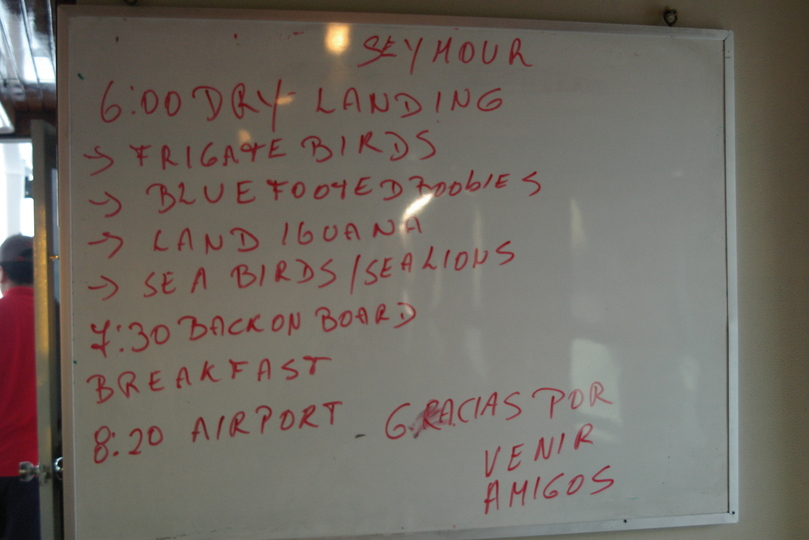 SEYMOUR
6:00 DRY LANDING
→ FRIGATE BIRDS
→ BLUE FOOTED BOOBIES
→ LAND IGUANA
→ SEA BIRDS/SEALIONS
7:30 BACK ON BOARD
BREAKFAST
8:20 AIRPORT - GRACIAS POR
VENIR
AMIGOS